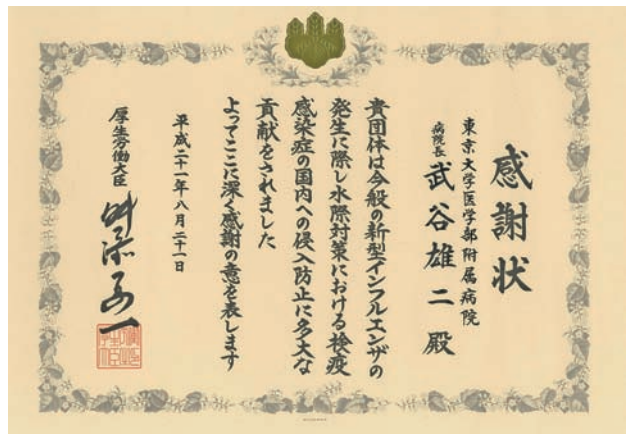 感謝状
東京大学医学部附属病院
病院長 武谷雄二 殿
貴団体は今般の新型インフルエンザの
発生に際し水際対策における検疫
感染症の国内への侵入防止に多大な
貢献をされました
よってここに深く感謝の意を表します
平成二十一年八月二十一日
厚生労働大臣 舛添要一